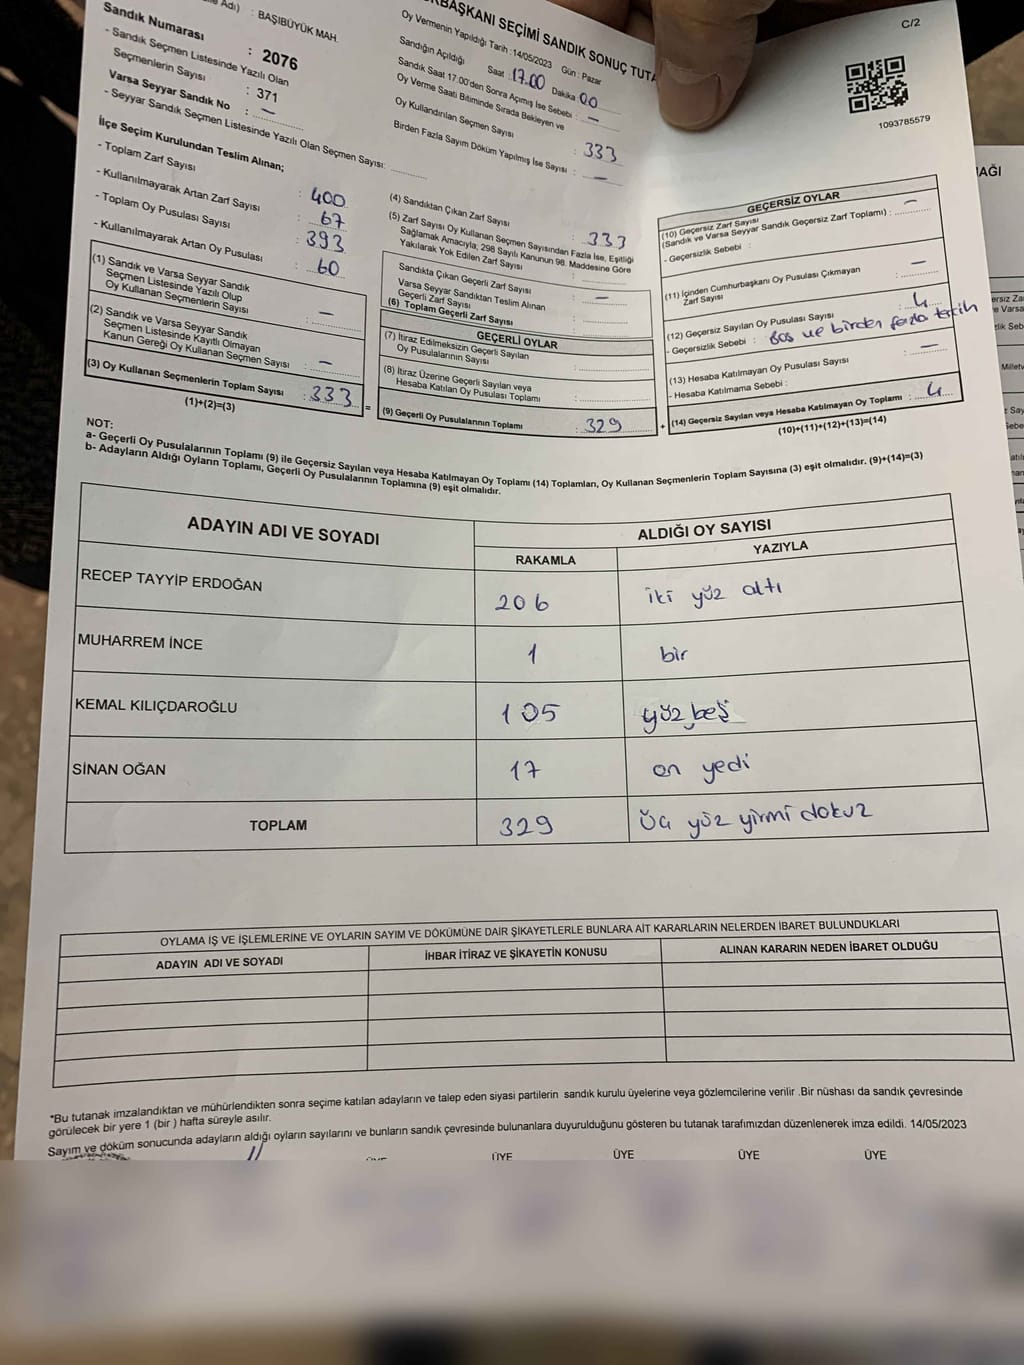 Adı) : BAŞIBÜYÜK MAH.
Sandık Numarası : 2076
- Sandık Seçmen Listesinde Yazılı Olan
Seçmenlerin Sayısı : 371
Varsa Seyyar Sandık No : —
- Seyyar Sandık Seçmen Listesinde Yazılı Olan Seçmen Sayısı:
BAŞKANI SEÇİMİ SANDIK SONUÇ TUTA
C/2
Oy Vermenin Yapıldığı Tarih :14/05/2023 Gün : Pazar
Sandığın Açıldığı Saat : 17.00 Dakika 00
Sandık Saat 17.00'den Sonra Açımış İse Sebebi : —
Oy Verme Saati Bitiminde Sırada Bekleyen ve
Oy Kullandırılan Seçmen Sayısı : 333
Birden Fazla Sayım Döküm Yapılmış İse Sayısı : —
1093785579
İlçe Seçim Kurulundan Teslim Alınan;
- Toplam Zarf Sayısı : 400
- Kullanılmayarak Artan Zarf Sayısı : 67
- Toplam Oy Pusulası Sayısı : 393
- Kullanılmayarak Artan Oy Pusulası : 60
(1) Sandık ve Varsa Seyyar Sandık
Seçmen Listesinde Yazılı Olup
Oy Kullanan Seçmenlerin Sayısı : —
(2) Sandık ve Varsa Seyyar Sandık
Seçmen Listesinde Kayıtlı Olmayan
Kanun Gereği Oy Kullanan Seçmen Sayısı : —
(3) Oy Kullanan Seçmenlerin Toplam Sayısı : 333 =
(1)+(2)=(3)
(4) Sandıktan Çıkan Zarf Sayısı : 333
(5) Zarf Sayısı Oy Kullanan Seçmen Sayısından Fazla İse, Eşitliği
Sağlamak Amacıyla; 298 Sayılı Kanunun 98. Maddesine Göre
Yakılarak Yok Edilen Zarf Sayısı :
Sandıkta Çıkan Geçerli Zarf Sayısı : —
Varsa Seyyar Sandıktan Teslim Alınan
Geçerli Zarf Sayısı :
(6) Toplam Geçerli Zarf Sayısı :
GEÇERLİ OYLAR
(7) İtiraz Edilmeksizin Geçerli Sayılan
Oy Pusulalarının Sayısı :
(8) İtiraz Üzerine Geçerli Sayılan veya
Hesaba Katılan Oy Pusulası Toplamı :
(9) Geçerli Oy Pusulalarının Toplamı : 329 +
GEÇERSİZ OYLAR
(10) Geçersiz Zarf Sayısı
(Sandık ve Varsa Seyyar Sandık Geçersiz Zarf Toplamı) : —
- Geçersizlik Sebebi :
(11) İçinden Cumhurbaşkanı Oy Pusulası Çıkmayan
Zarf Sayısı : —
(12) Geçersiz Sayılan Oy Pusulası Sayısı : 4
- Geçersizlik Sebebi : Boş ve birden fazla tercih
(13) Hesaba Katılmayan Oy Pusulası Sayısı : —
- Hesaba Katılmama Sebebi :
(14) Geçersiz Sayılan veya Hesaba Katılmayan Oy Toplamı : 4
(10)+(11)+(12)+(13)=(14)
NOT:
a- Geçerli Oy Pusulalarının Toplamı (9) ile Geçersiz Sayılan veya Hesaba Katılmayan Oy Toplamı (14) Toplamları, Oy Kullanan Seçmenlerin Toplam Sayısına (3) eşit olmalıdır. (9)+(14)=(3)
b- Adayların Aldığı Oyların Toplamı, Geçerli Oy Pusulalarının Toplamına (9) eşit olmalıdır.
ADAYIN ADI VE SOYADI ALDIĞI OY SAYISI
RAKAMLA YAZIYLA
RECEP TAYYİP ERDOĞAN 206 iki yüz altı
MUHARREM İNCE 1 bir
KEMAL KILIÇDAROĞLU 105 yüz beş
SİNAN OĞAN 17 on yedi
TOPLAM 329 Üç yüz yirmi dokuz
OYLAMA İŞ VE İŞLEMLERİNE VE OYLARIN SAYIM VE DÖKÜMÜNE DAİR ŞİKAYETLERLE BUNLARA AİT KARARLARIN NELERDEN İBARET BULUNDUKLARI
ADAYIN ADI VE SOYADI İHBAR İTİRAZ VE ŞİKAYETİN KONUSU ALINAN KARARIN NEDEN İBARET OLDUĞU
*Bu tutanak imzalandıktan ve mühürlendikten sonra seçime katılan adayların ve talep eden siyasi partilerin sandık kurulu üyelerine veya gözlemcilerine verilir .Bir nüshası da sandık çevresinde
görülecek bir yere 1 (bir ) hafta süreyle asılır.
Sayım ve döküm sonucunda adayların aldığı oyların sayılarını ve bunların sandık çevresinde bulunanlara duyurulduğunu gösteren bu tutanak tarafımızdan düzenlenerek imza edildi. 14/05/2023
ÜYE ÜYE ÜYE ÜYE